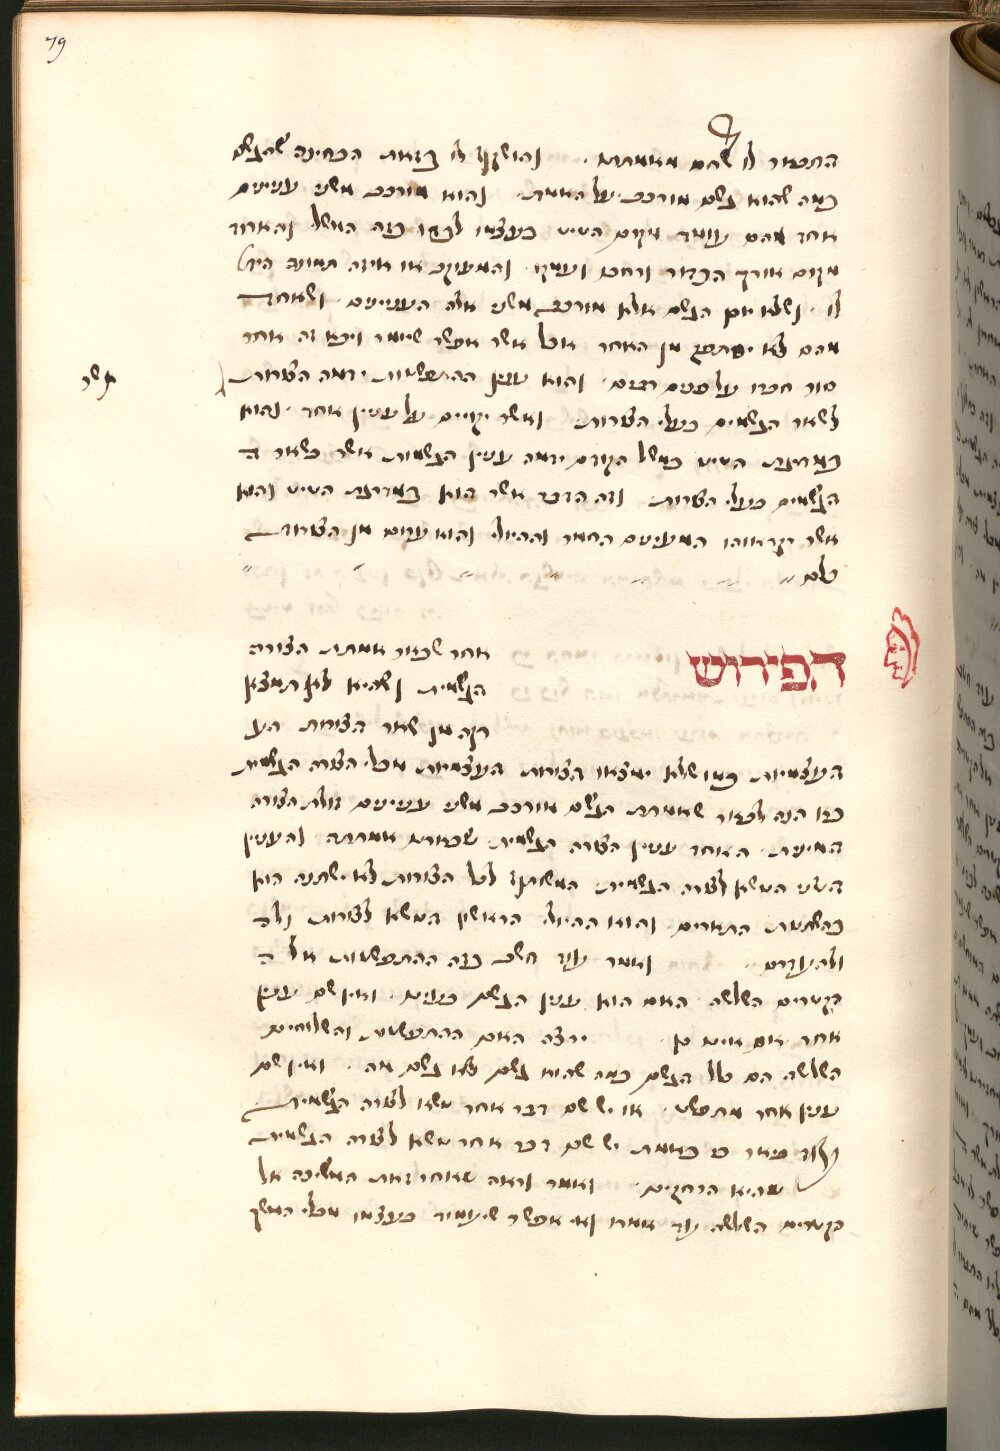 79
התבאר לו שהם מאמתת . והושקף לו בזאת הבחינה שהגשם
במה שהוא גשם מורכב על האמת . והוא מורכב משני ענינים
אחד מהם עומד מקום הטיט בעצמו לכדור בזה המשל והאחר
מקום אורך הכדור ורחבו ועמקו . והמעוקב או איזה תמונה היה
לו . ושלא יובן הגשם אלא מורכב משני אלה הענינים . ושאחד
מהם לא יסתפק מן האחר אבל אשר אפשר שיומר ויבא זה אחר
סור חברו על פנים רבים . והוא ענין ההתפשטות ידמה הצורות
אשר
לשאר הגשמים בעלי הצורות ואשר יקויים על ענין אחד . והוא
במדרגת הטיט במשל הקודם ידמה ענין הגשמות אשר בשאר ה
הגשמים בעלי הצורות וזה הדבר אשר הוא במדרגת הטיט והוא
אשר יקראוהו המעינים החמר וההיולי והוא ערום מן הצורות
כלם
הפירוש
אחר שבאר אמתת הצורה
הגשמית ושהיא לא תמצא
רקה מן שאר הצורות הע
העצמיות כמו שלא ימצאו הצורות העצמיות מבלי הצורה הגשמית
בזו הנה לבאר שאמתת הגשם מורכב משני ענינים זולת הצורה
המינית . האחד ענין הצורה הגשמית שבארנו אמתתה והענין
השני הנושא לצורה הגשמית המשותף לכל הצורות לא ישתנה הוא
בהשתנות התארים והוא ההיולי הראשון הנושא לצורות ולה
ולהעדרם ואמר עוד חשב בזה ההתפשטות אל ה
הקטרים השלשה האם הוא ענין הגשם בעינו . ואין שם ענין
אחר אם אינו כן . ירצה האם ההתפשטות והשלוחים
השלשה הם כל הגשם במה שהוא גשם לא גשם מה . ואין שם
ענין אחר מתפשט . או יש שם דבר אחר נושא לצורה הגשמית
ובאר כי באמת יש שם דבר אחר נושא לצורה הגשמית
שהיא הרחקים . ואמר וראה שאחרי זאת המשיכה אל
הקטרים השלשה עוד אחרו ואי אפשר שיעמוד בעצמו מבלי המשך